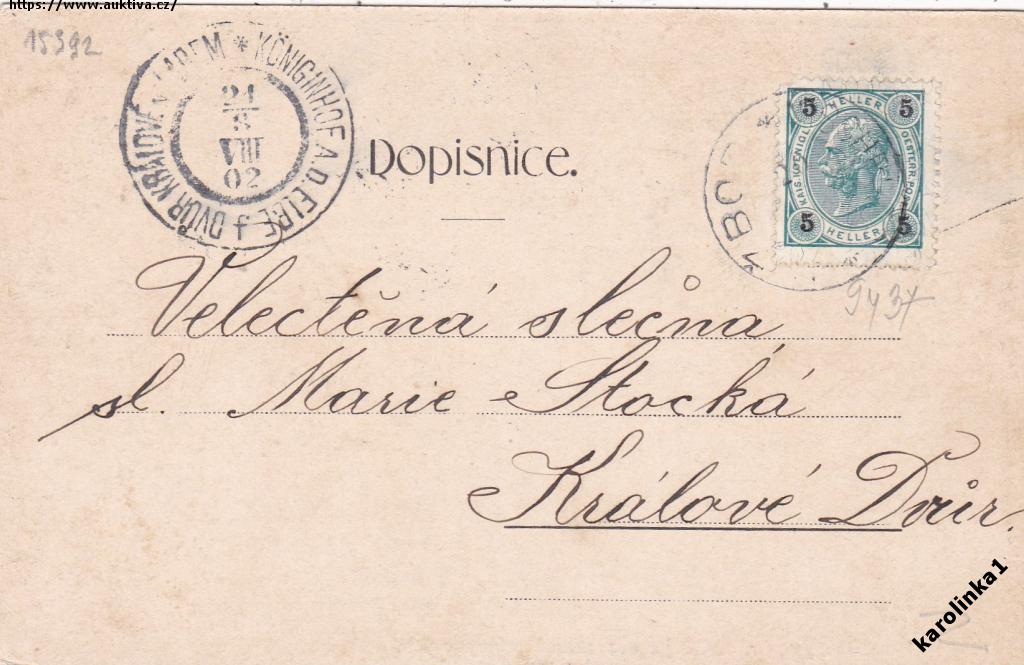 https://www.auktiva.cz/
15392
DVŮR KRÁLOVÉ * KÖNIGINHOF A.D. ELBE
24
8
VIII
02
f
Dopisnice.
5 HELLER 5
KAIS. KOENIGL. OESTERR. POST
5 HELLER 5
Velectěná slečna
sl. Marie Stocká
Králové Dvůr.
karolinka1